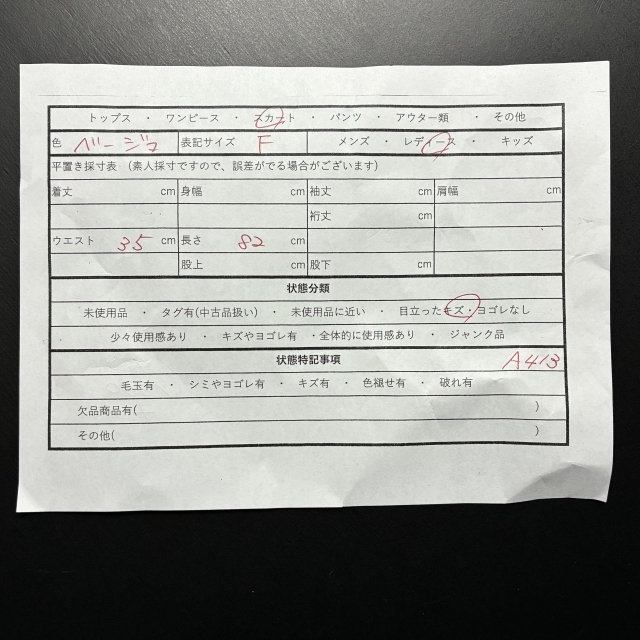 トップス ・ ワンピース ・ スカート ・ パンツ ・ アウター類 ・ その他
色 ベージュ 表記サイズ F メンズ ・ レディース ・ キッズ
平置き採寸表 （素人採寸ですので、誤差がでる場合がございます）
着丈 cm 身幅 cm 袖丈 cm 肩幅 cm
裄丈 cm
ウエスト 35 cm 長さ 82 cm
股上 cm 股下 cm
状態分類
未使用品 ・ タグ有(中古品扱い) ・ 未使用に近い ・ 目立ったキズ・ヨゴレなし
少々使用感あり ・ キズやヨゴレ有 ・全体的に使用感あり ・ ジャンク品
状態特記事項 A413
毛玉有 ・ シミやヨゴレ有 ・ キズ有 ・ 色褪せ有 ・ 破れ有
欠品商品有( )
その他( )